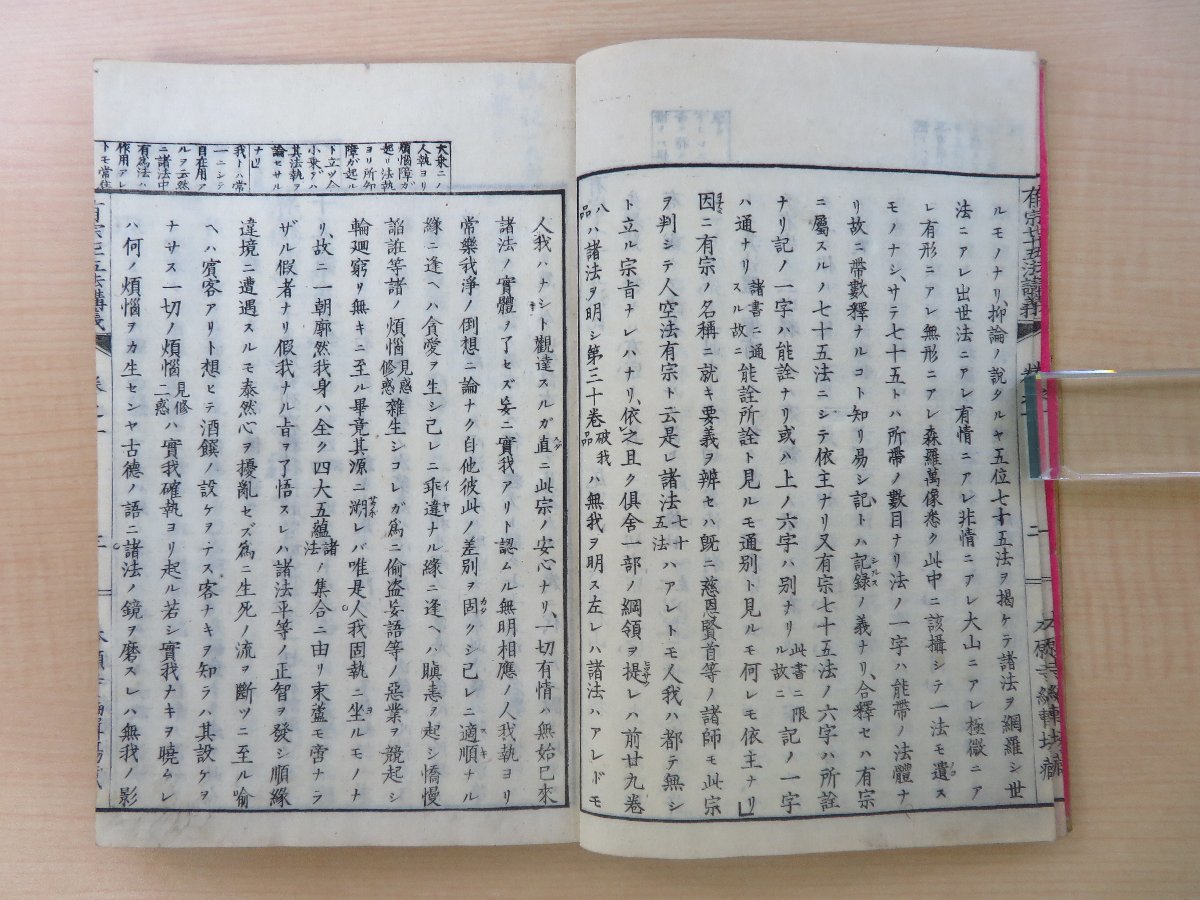 有宗七十五法講義
ルモノナリ、抑論ノ說タルヤ五位七十五法ヲ揭ケテ諸法ヲ網羅シ世
法ニアレ出世法ニアレ有情ニアレ非情ニアレ大山ニアレ極微ニア
レ有形ニアレ無形ニアレ森羅萬像悉ク此中ニ該攝シテ一法モ遺ス
モノナシ、サテ七十五トハ所帶ノ數目ナリ法ノ一字ハ能帶ノ法體ナ
リ故ニ帶數釋ナルコト知リ易シ記トハ記錄ノ義ナリ、合釋セハ有宗
ニ屬スルノ七十五法ニシテ依主ナリ又有宗七十五法ノ六字ハ所詮
ナリ記ノ一字ハ能詮ナリ或ハ上ノ六字ハ別ナリ此書ニ限ル故ニ記ノ一字
ハ通ナリ諸書ニ通スル故ニ能詮所詮ト見ルモ通別ト見ルモ何レモ依主ナリ
因ニ有宗ノ名稱ニ就キ要義ヲ辨セハ旣ニ慈恩賢首等ノ諸師モ此宗
ヲ判シテ人空法有宗ト云是レ諸法七十五法ハアレトモ人我ハ都テ無シ
ト立ル宗旨ナレハナリ、依之且ク俱舍一部ノ綱領ヲ提レハ前廿九卷
八品ハ諸法ヲ明シ第三十卷破我品ハ無我ヲ明ス左レハ諸法ハアレドモ
人我ハナシト觀達スルガ直ニ此宗ノ安心ナリ、一切有情ハ無始已來
諸法ノ實體ヲ了セズ妄ニ實我アリト認ムル無明相應ノ人我執ヨリ
常樂我淨ノ倒想ニ論ナク自他彼此ノ差別ヲ固クシ己レニ適順ナル
緣ニ逢ヘハ貪愛ヲ生シ己レニ乖違ナル緣ニ逢ヘハ瞋恚ヲ起シ憍慢
諂誑等諸ノ煩惱見惑修惑雜生シコレガ爲ニ偷盜妄語等ノ惡業ヲ競起シ
輪廻窮リ無キニ至ル畢竟其源ニ溯レバ唯是人我固執ニ坐ルモノナ
リ、故ニ一朝廓然我身ハ全ク四大五蘊諸法ノ集合ニ由リ束蘆モ啻ナラ
ザル假者ナリ假我ナル旨ヲ了悟スレハ諸法平等ノ正智ヲ發シ順緣
違境ニ遭遇スルモ泰然心ヲ擾亂セズ爲ニ生死ノ流ヲ斷ツニ至ル喻
ヘハ賓客アリト想ヒテ酒饌ノ設ケヲナス客ナキヲ知ラハ其設ケヲ
ナサス一切ノ煩惱見修二惑ハ實我確執ヨリ起ル若シ實我ナキヲ曉ムレ
ハ何ノ煩惱ヲカ生センヤ古德ノ語ニ諸法ノ鏡ヲ磨スレハ無我ノ影
大乘ニノ
人執ヨリ
煩惱障ガ
起リ法執
ヨリ所知
障ガ起ル
ト立ツ今
小乘ヲハ
其法執ヲ
論セサル
ナリ
我トハ常
一ニシテ
自在用ア
ルヲ云然
ニ諸法中
有爲法ハ
作用アレ
トモ常住